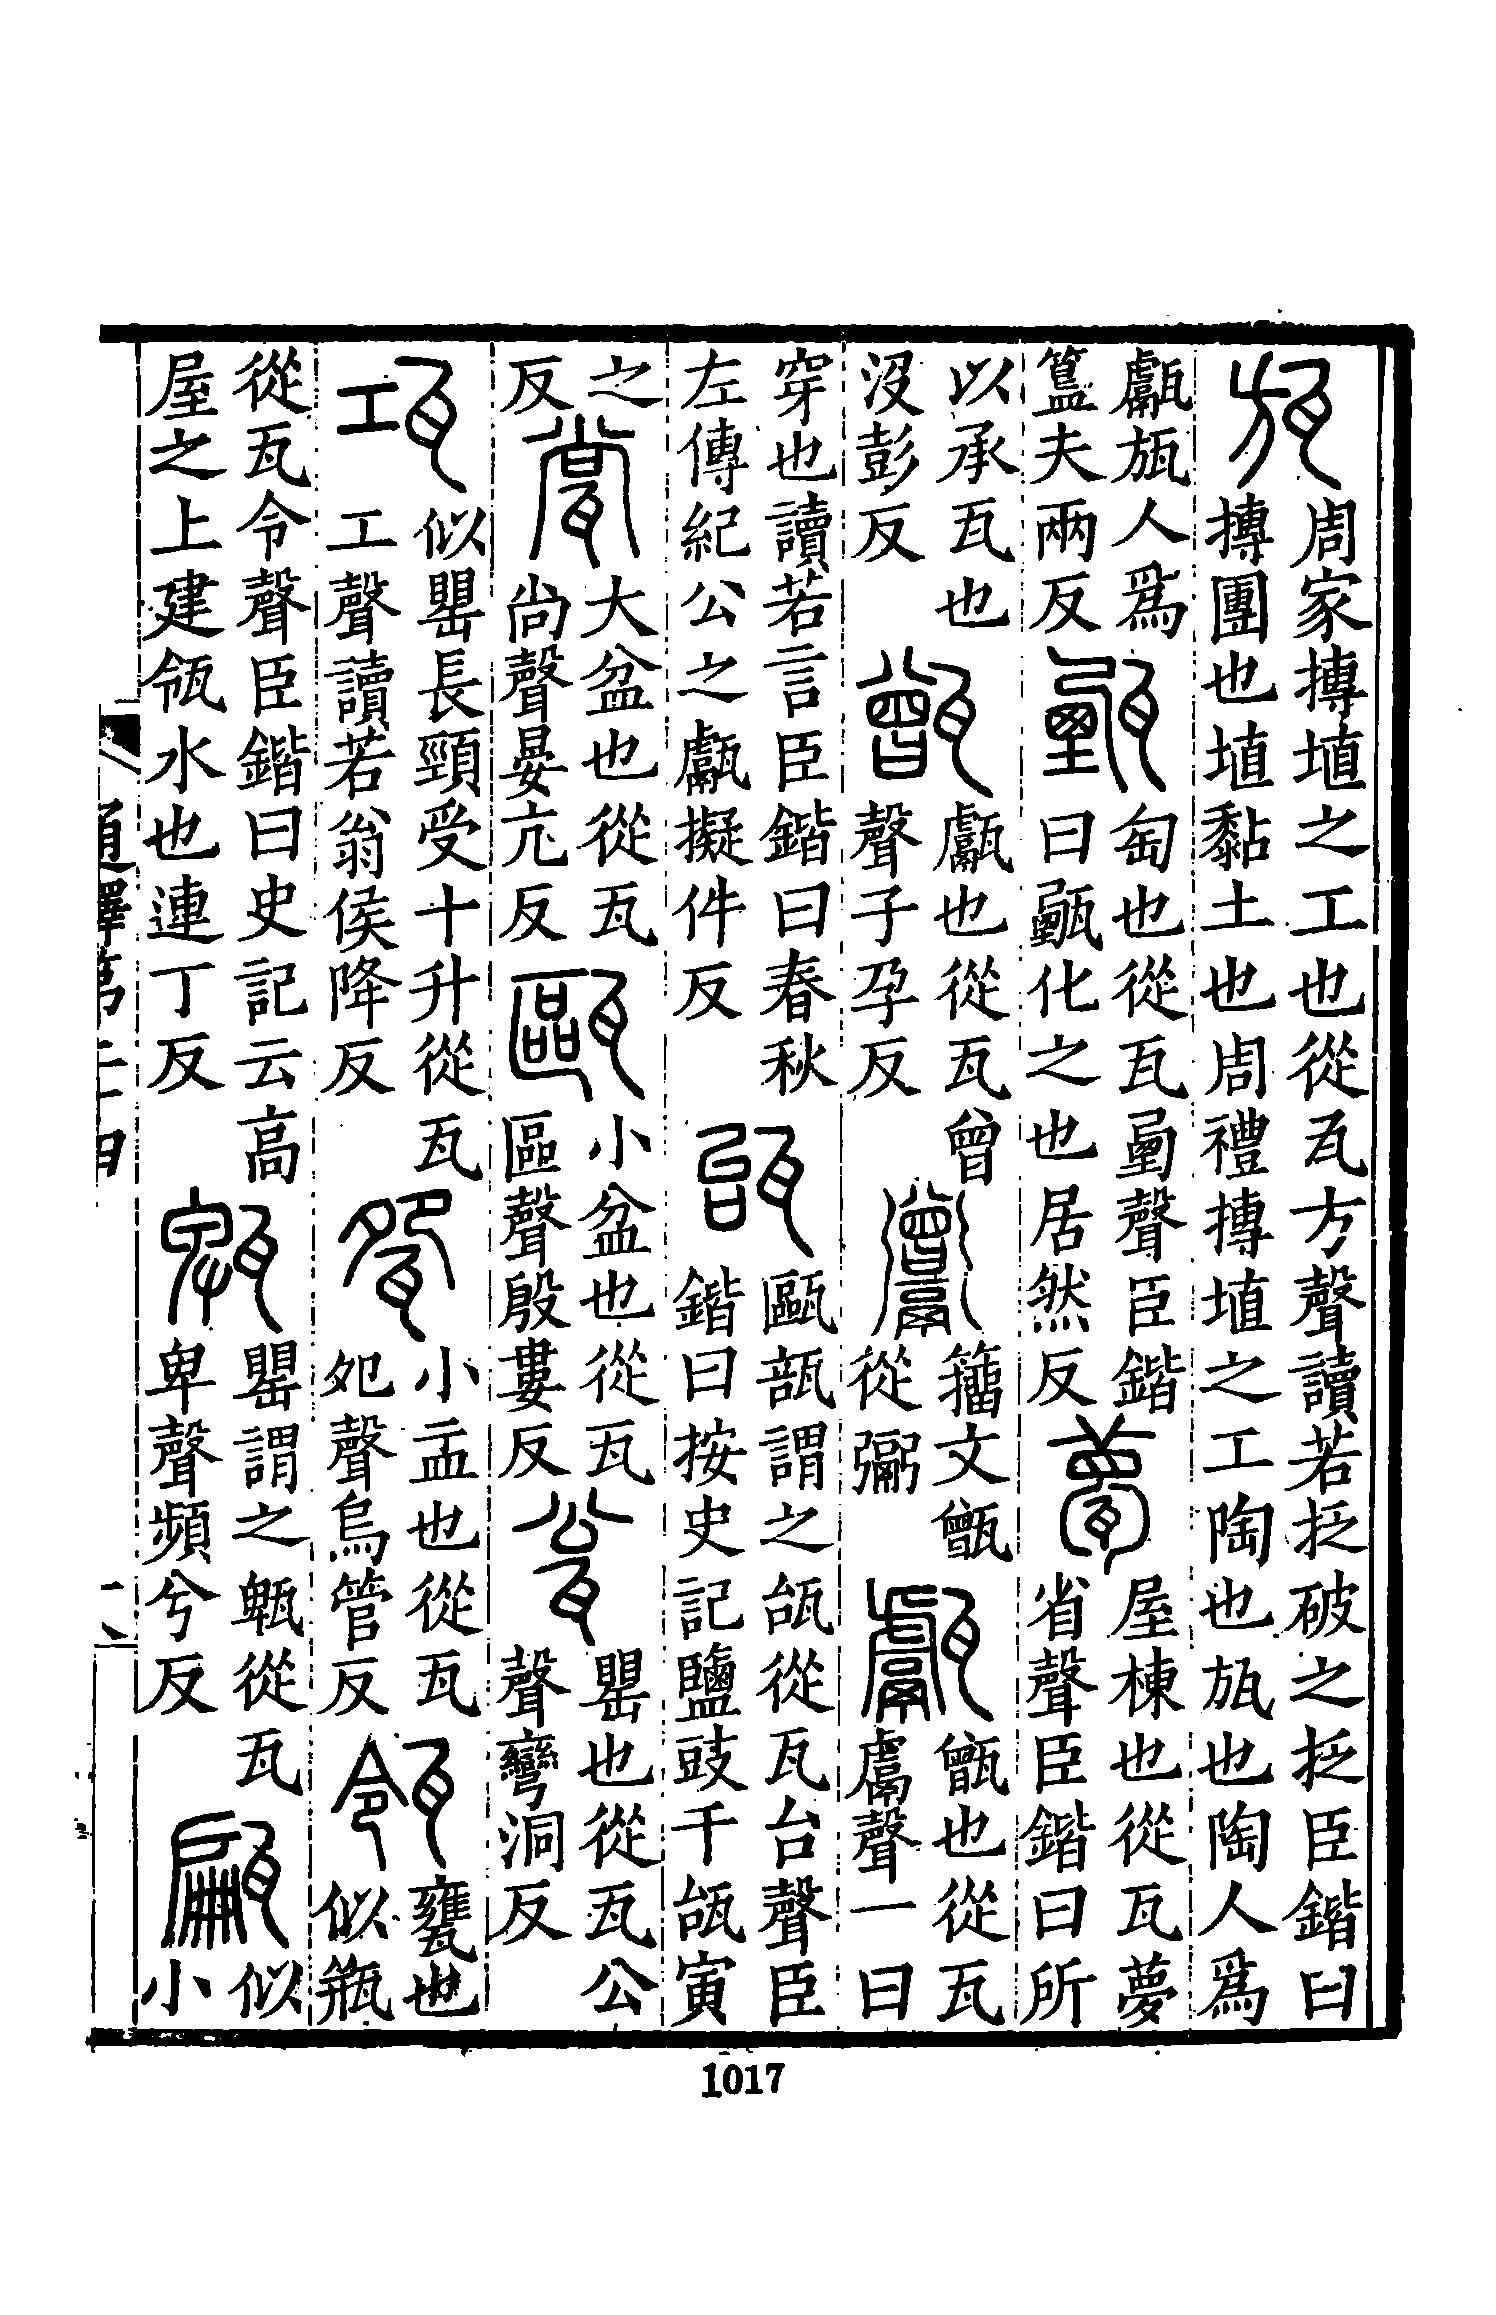 瓬
周家搏埴之工也從瓦方聲讀若抎破之抎臣鍇曰
摶團也埴黏土也周禮摶埴之工陶也瓬也陶人爲
甗瓬人爲
簋夫兩反
甄
匋也從瓦垔聲臣鍇
曰甄化之也居然反
甍
屋棟也從瓦夢
省聲臣鍇曰所
以承瓦也
沒彭反
甑
甗也從瓦曾
聲子孕反
籀文甑
從䰜
甗
甑也從瓦
鬳聲一曰
穿也讀若言臣鍇曰春秋
左傳紀公之甗擬件反
瓵
甌瓿謂之瓵從瓦台聲臣
鍇曰按史記鹽豉千瓵寅
之
反
㼕
大盆也從瓦
尚聲晏亢反
甌
小盆也從瓦
區聲殷婁反
瓮
罌也從瓦公
聲彎洞反
瓨
似罌長頸受十升從瓦
工聲讀若翁侯降反
㼝
小盂也從瓦
夗聲烏管反
瓴
甕也
似瓶
從瓦令聲臣鍇曰史記云高
屋之上建瓴水也連丁反
𤭢
罌謂之𤭢從瓦
卑聲頻兮反
甂
似
小
通釋第二十四
二
1017